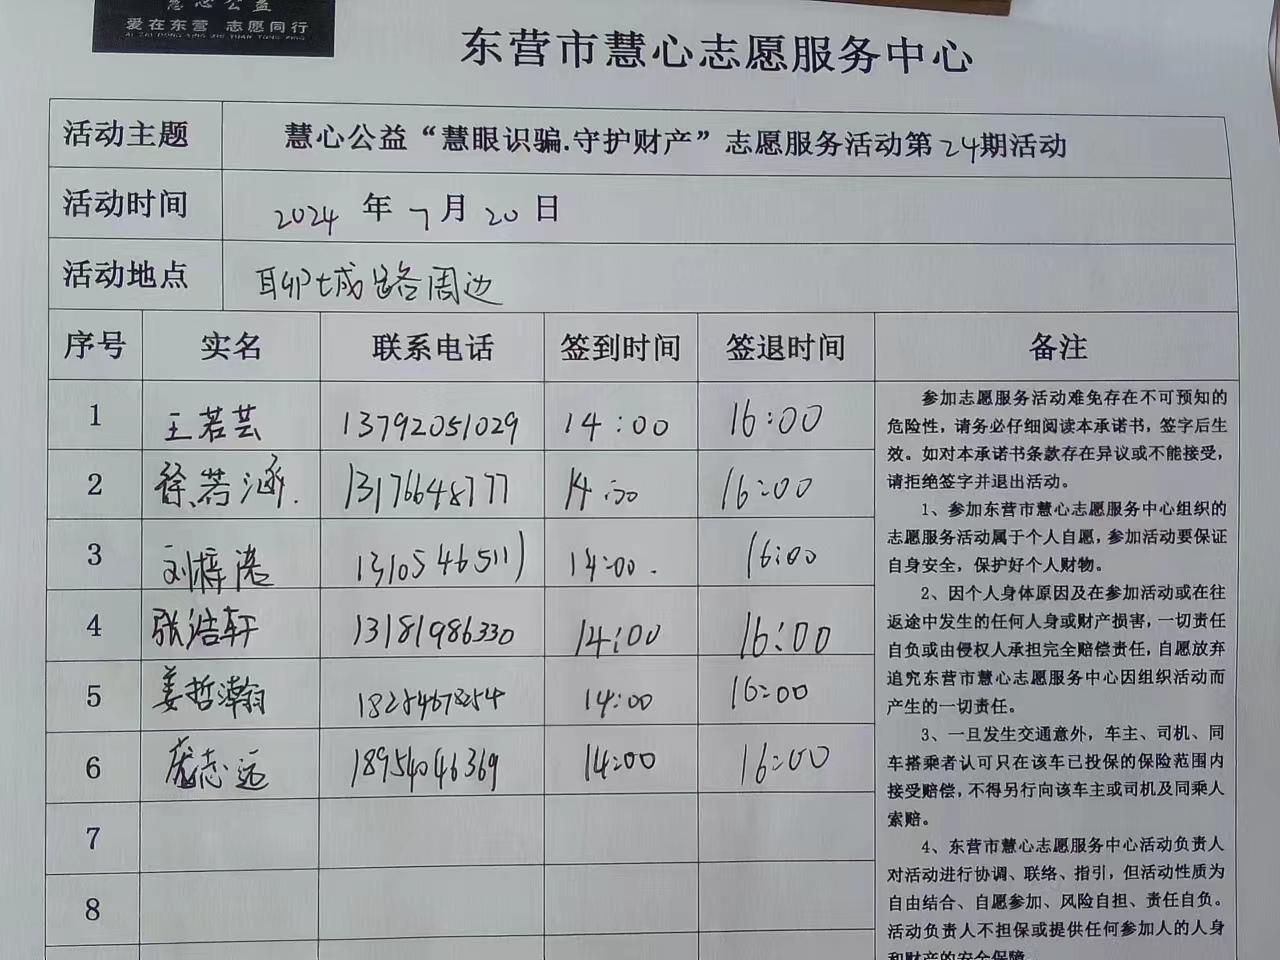 慧心公益
爱在东营 志愿同行
东营市慧心志愿服务中心
活动主题 慧心公益“慧眼识骗.守护财产”志愿服务活动第24期活动
活动时间 2024 年 7 月 20 日
活动地点 聊城路周边
序号 实名 联系电话 签到时间 签退时间 备注
1 王若芸 13792051029 14:00 16:00
2 徐若涵. 13176648777 14:00 16:00
3 刘梓 13105465111 14:00. 16:00
4 张浩轩 13181986330 14:00 16:00
5 姜哲瀚 18254678254 14:00 16:00
6 庞志远 18954046369 14:00 16:00
7
8
参加志愿服务活动难免存在不可预知的
危险性，请务必仔细阅读本承诺书，签字后生
效。如对本承诺书条款存在异议或不能接受，
请拒绝签字并退出活动。
1、参加东营市慧心志愿服务中心组织的
志愿服务活动属于个人自愿，参加活动要保证
自身安全，保护好个人财物。
2、因个人身体原因及在参加活动或在往
返途中发生的任何人身或财产损害，一切责任
自负或由侵权人承担完全赔偿责任，自愿放弃
追究东营市慧心志愿服务中心因组织活动而
产生的一切责任。
3、一旦发生交通意外，车主、司机、同
车搭乘者认可只在该车已投保的保险范围内
接受赔偿，不得另行向该车主或司机及同乘人
索赔。
4、东营市慧心志愿服务中心活动负责人
对活动进行协调、联络、指引，但活动性质为
自由结合、自愿参加、风险自担、责任自负。
活动负责人不担保或提供任何参加人的人身
和财产的安全保障。